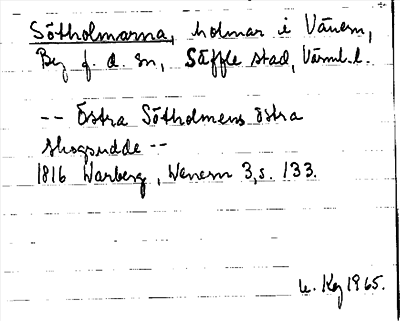 Sötholmarna, holmar i Vänern,
By f. d. sn, Säffle stad, Värml. l.
-- Östra Sötholmens östra
skogsudde --
1816 Warberg, Wenern 3, s. 133.
1965.